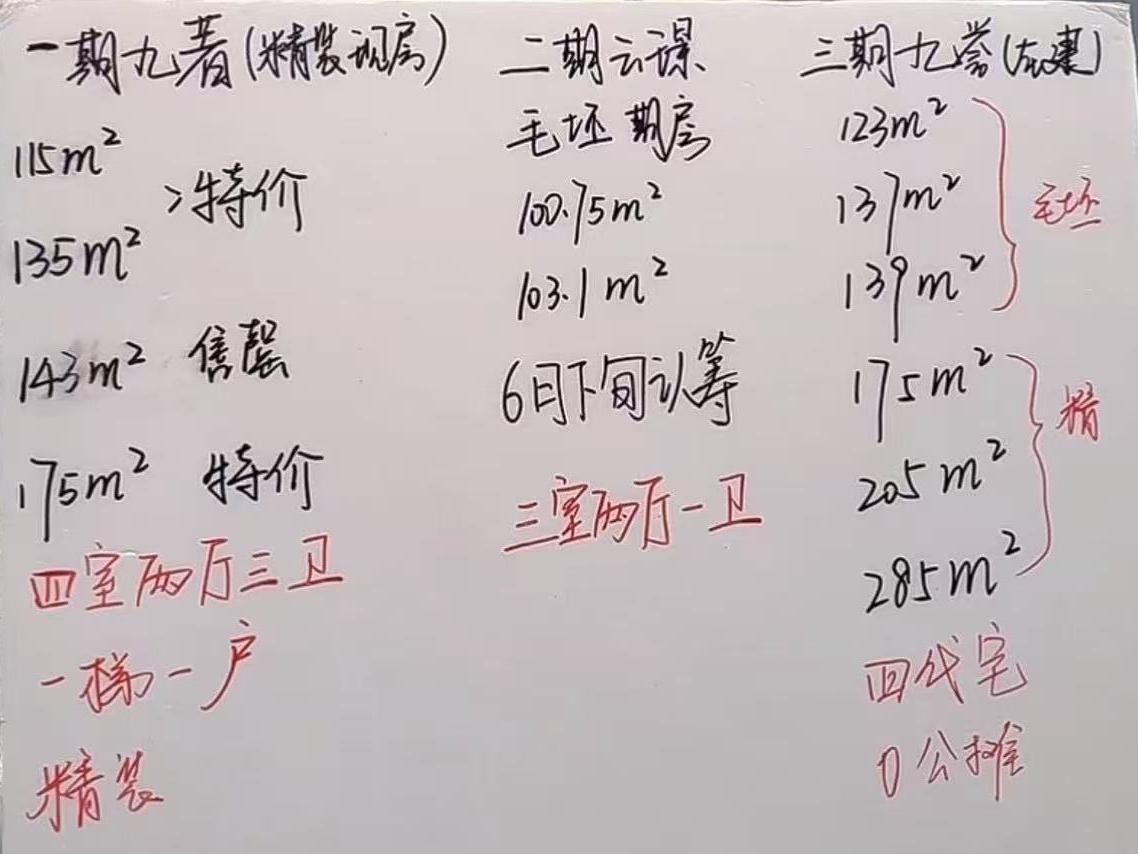 一期九著(精装现房)
115m²
>特价
135m²
143m² 售罄
175m² 特价
四室两厅三卫
一梯一户
精装
二期云璟
毛坯期房
100.75m²
103.1m²
6月下旬认筹
三室两厅一卫
三期九誉(在建)
123m²
137m²
139m²
毛坯
175m²
205m²
285m²
精
四代宅
0公摊